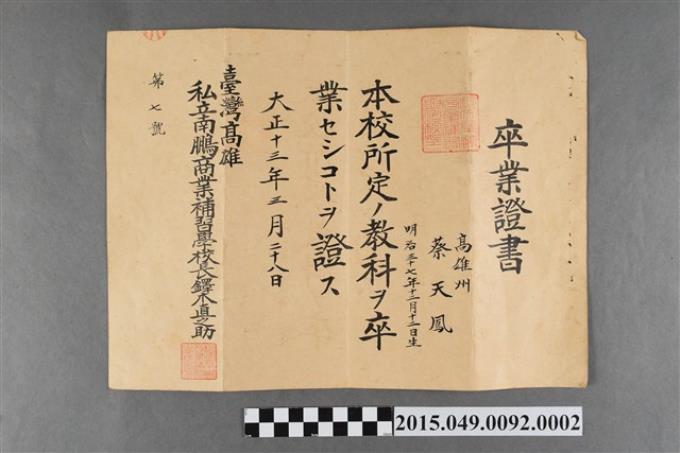 卒業證書
高雄州
蔡天鳳
明治三十七年十二月十二日生
本校所定ノ教科ヲ卒
業セシコトヲ證ス
大正十三年三月二十八日
臺灣高雄
私立南鵬商業補習學校長鐸木直之助
第七號
2015.049.0092.0002